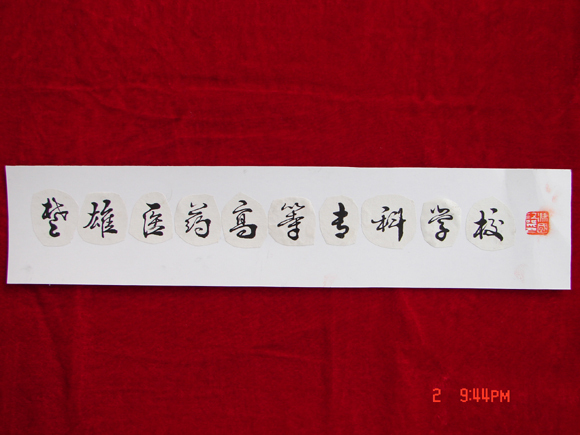 楚雄医药高等专科学校
2 9:44PM